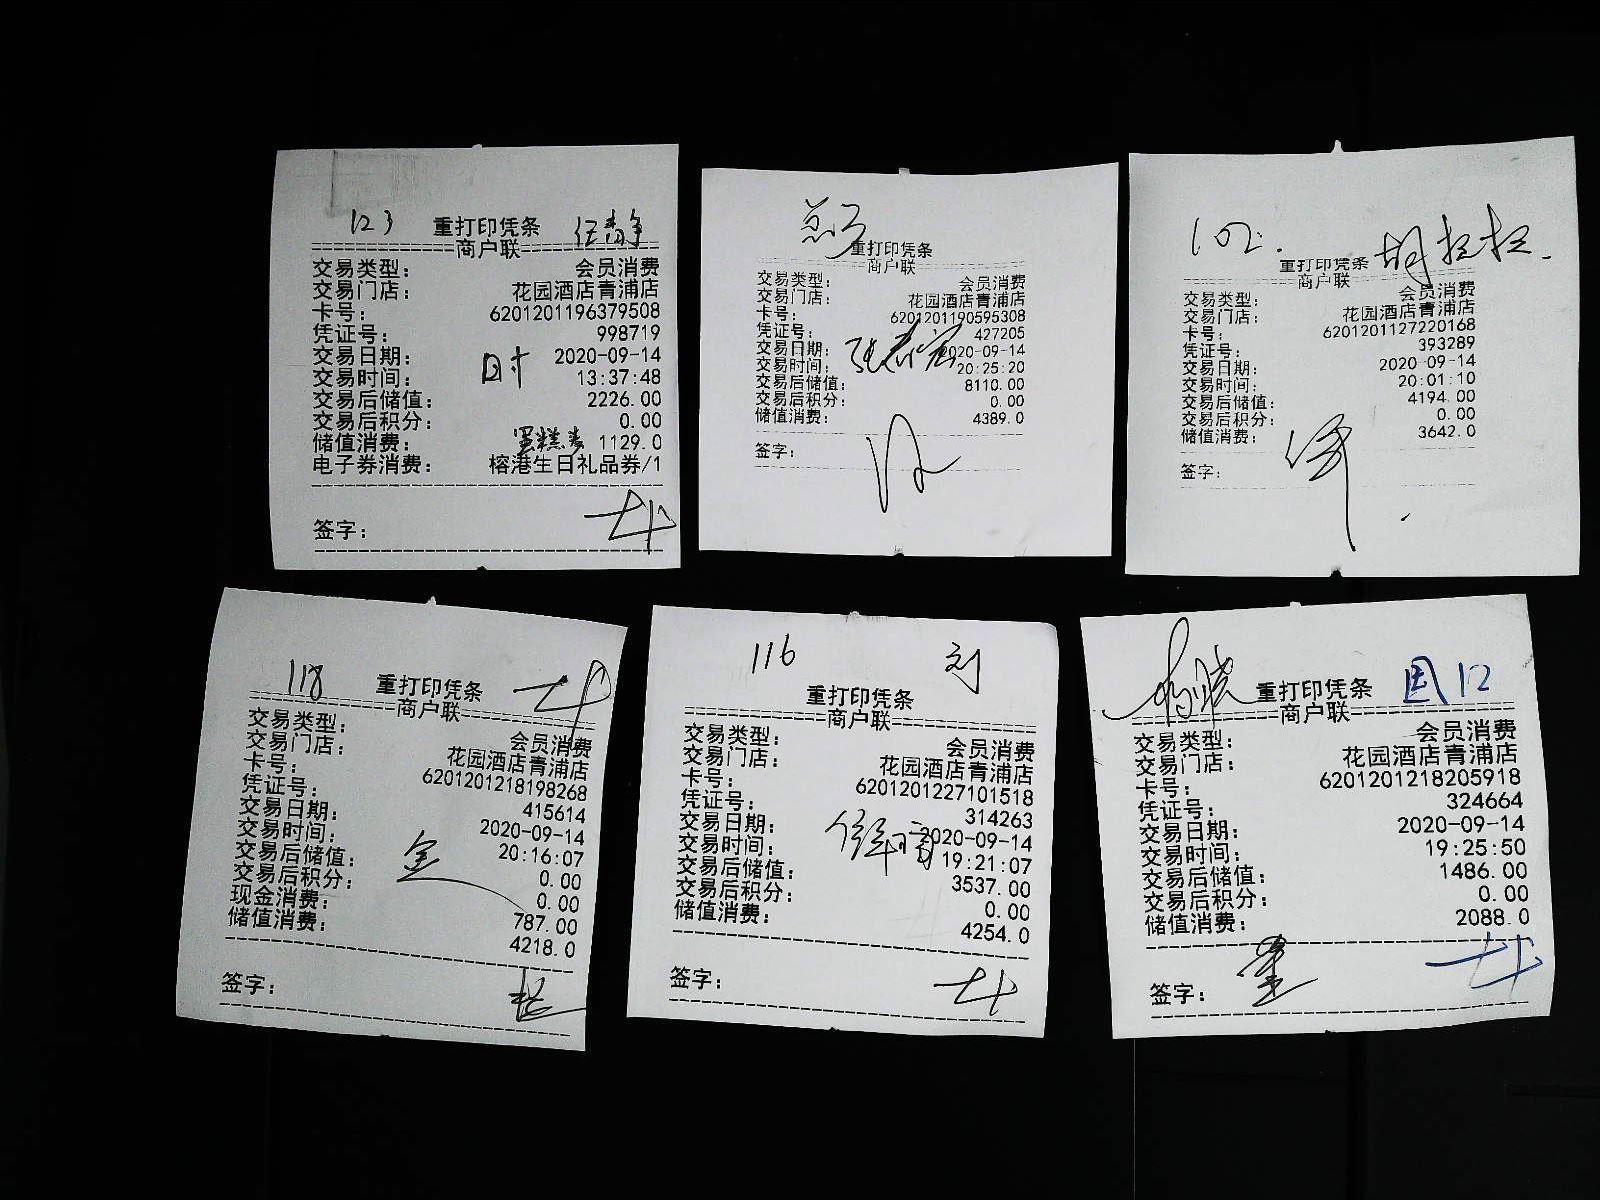 123 重打印凭条 任静
商户联
交易类型: 会员消费
交易门店: 花园酒店青浦店
卡号: 6201201196379508
凭证号: 998719
交易日期: 2020-09-14
交易时间: 13:37:48
交易后储值: 2226.00
交易后积分: 0.00
储值消费: 蛋糕券 1129.0
电子券消费: 榕港生日礼品券/1
签字:
重打印凭条
商户联
交易类型: 会员消费
交易门店: 花园酒店青浦店
卡号: 6201201190595308
凭证号: 427205
交易日期: 2020-09-14
交易时间: 20:25:20
交易后储值: 8110.00
交易后积分: 0.00
储值消费: 4389.0
签字:
102.
重打印凭条
商户联
交易类型: 会员消费
交易门店: 花园酒店青浦店
卡号: 6201201127220168
凭证号: 393289
交易日期: 2020-09-14
交易时间: 20:01:10
交易后储值: 4194.00
交易后积分: 0.00
储值消费: 3642.0
签字:
118 重打印凭条
商户联
交易类型: 会员消费
交易门店: 花园酒店青浦店
卡号: 6201201218198268
凭证号: 415614
交易日期: 2020-09-14
交易时间: 20:16:07
交易后储值: 0.00
交易后积分: 0.00
现金消费: 787.00
储值消费: 4218.0
签字:
116 刘
重打印凭条
商户联
交易类型: 会员消费
交易门店: 花园酒店青浦店
卡号: 6201201227101518
凭证号: 314263
交易日期: 2020-09-14
交易时间: 19:21:07
交易后储值: 3537.00
交易后积分: 0.00
储值消费: 4254.0
签字:
重打印凭条 12
商户联
交易类型: 会员消费
交易门店: 花园酒店青浦店
卡号: 6201201218205918
凭证号: 324664
交易日期: 2020-09-14
交易时间: 19:25:50
交易后储值: 1486.00
交易后积分: 0.00
储值消费: 2088.0
签字: